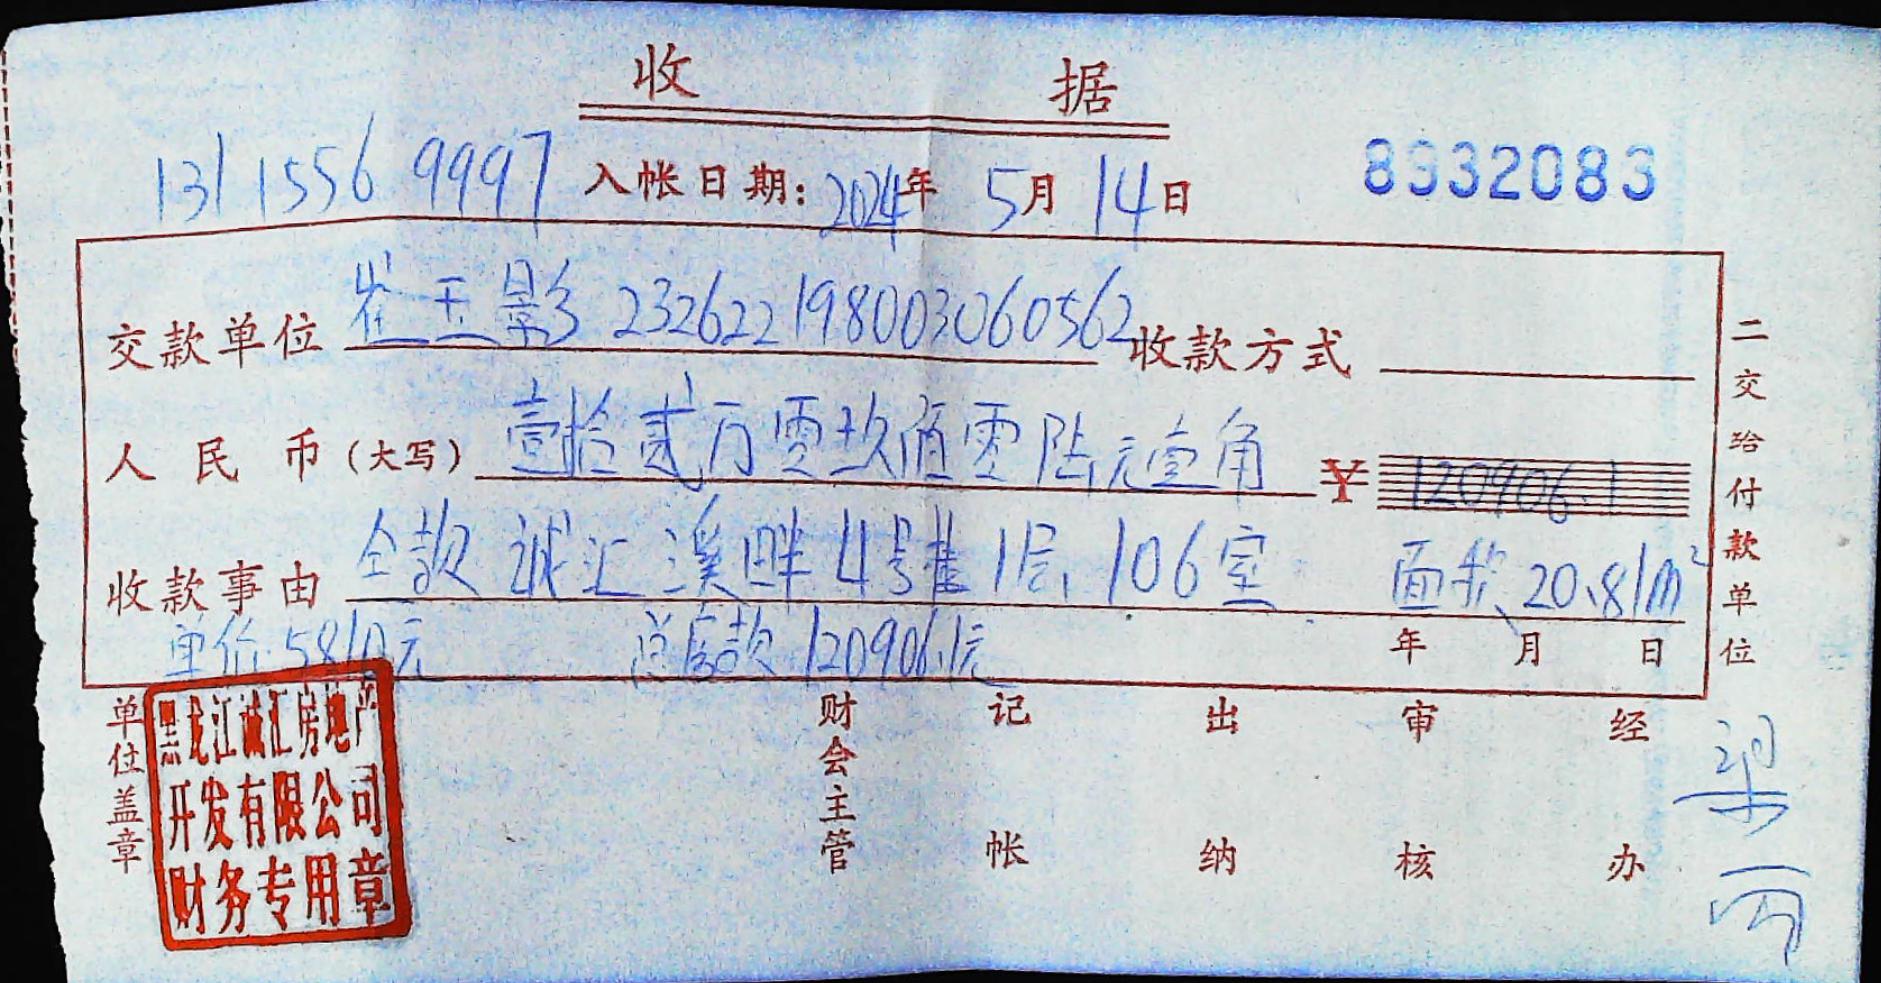 收 据
131 1556 9997 入帐日期: 2024年 5月 14日 8932083
交款单位 崔玉影 232622198003060562 收款方式
人民币(大写) 壹拾贰万零玖佰零陆元壹角 ¥ 120906.1
收款事由 全款 诚汇溪畔4号楼1层106室 面积20.81m²
单价5810元 总房款120906.1元 年 月 日
二交给付款单位
单位盖章 财会主管 记帐 出纳 审核 经办
黑龙江诚汇房地产
开发有限公司
财务专用章